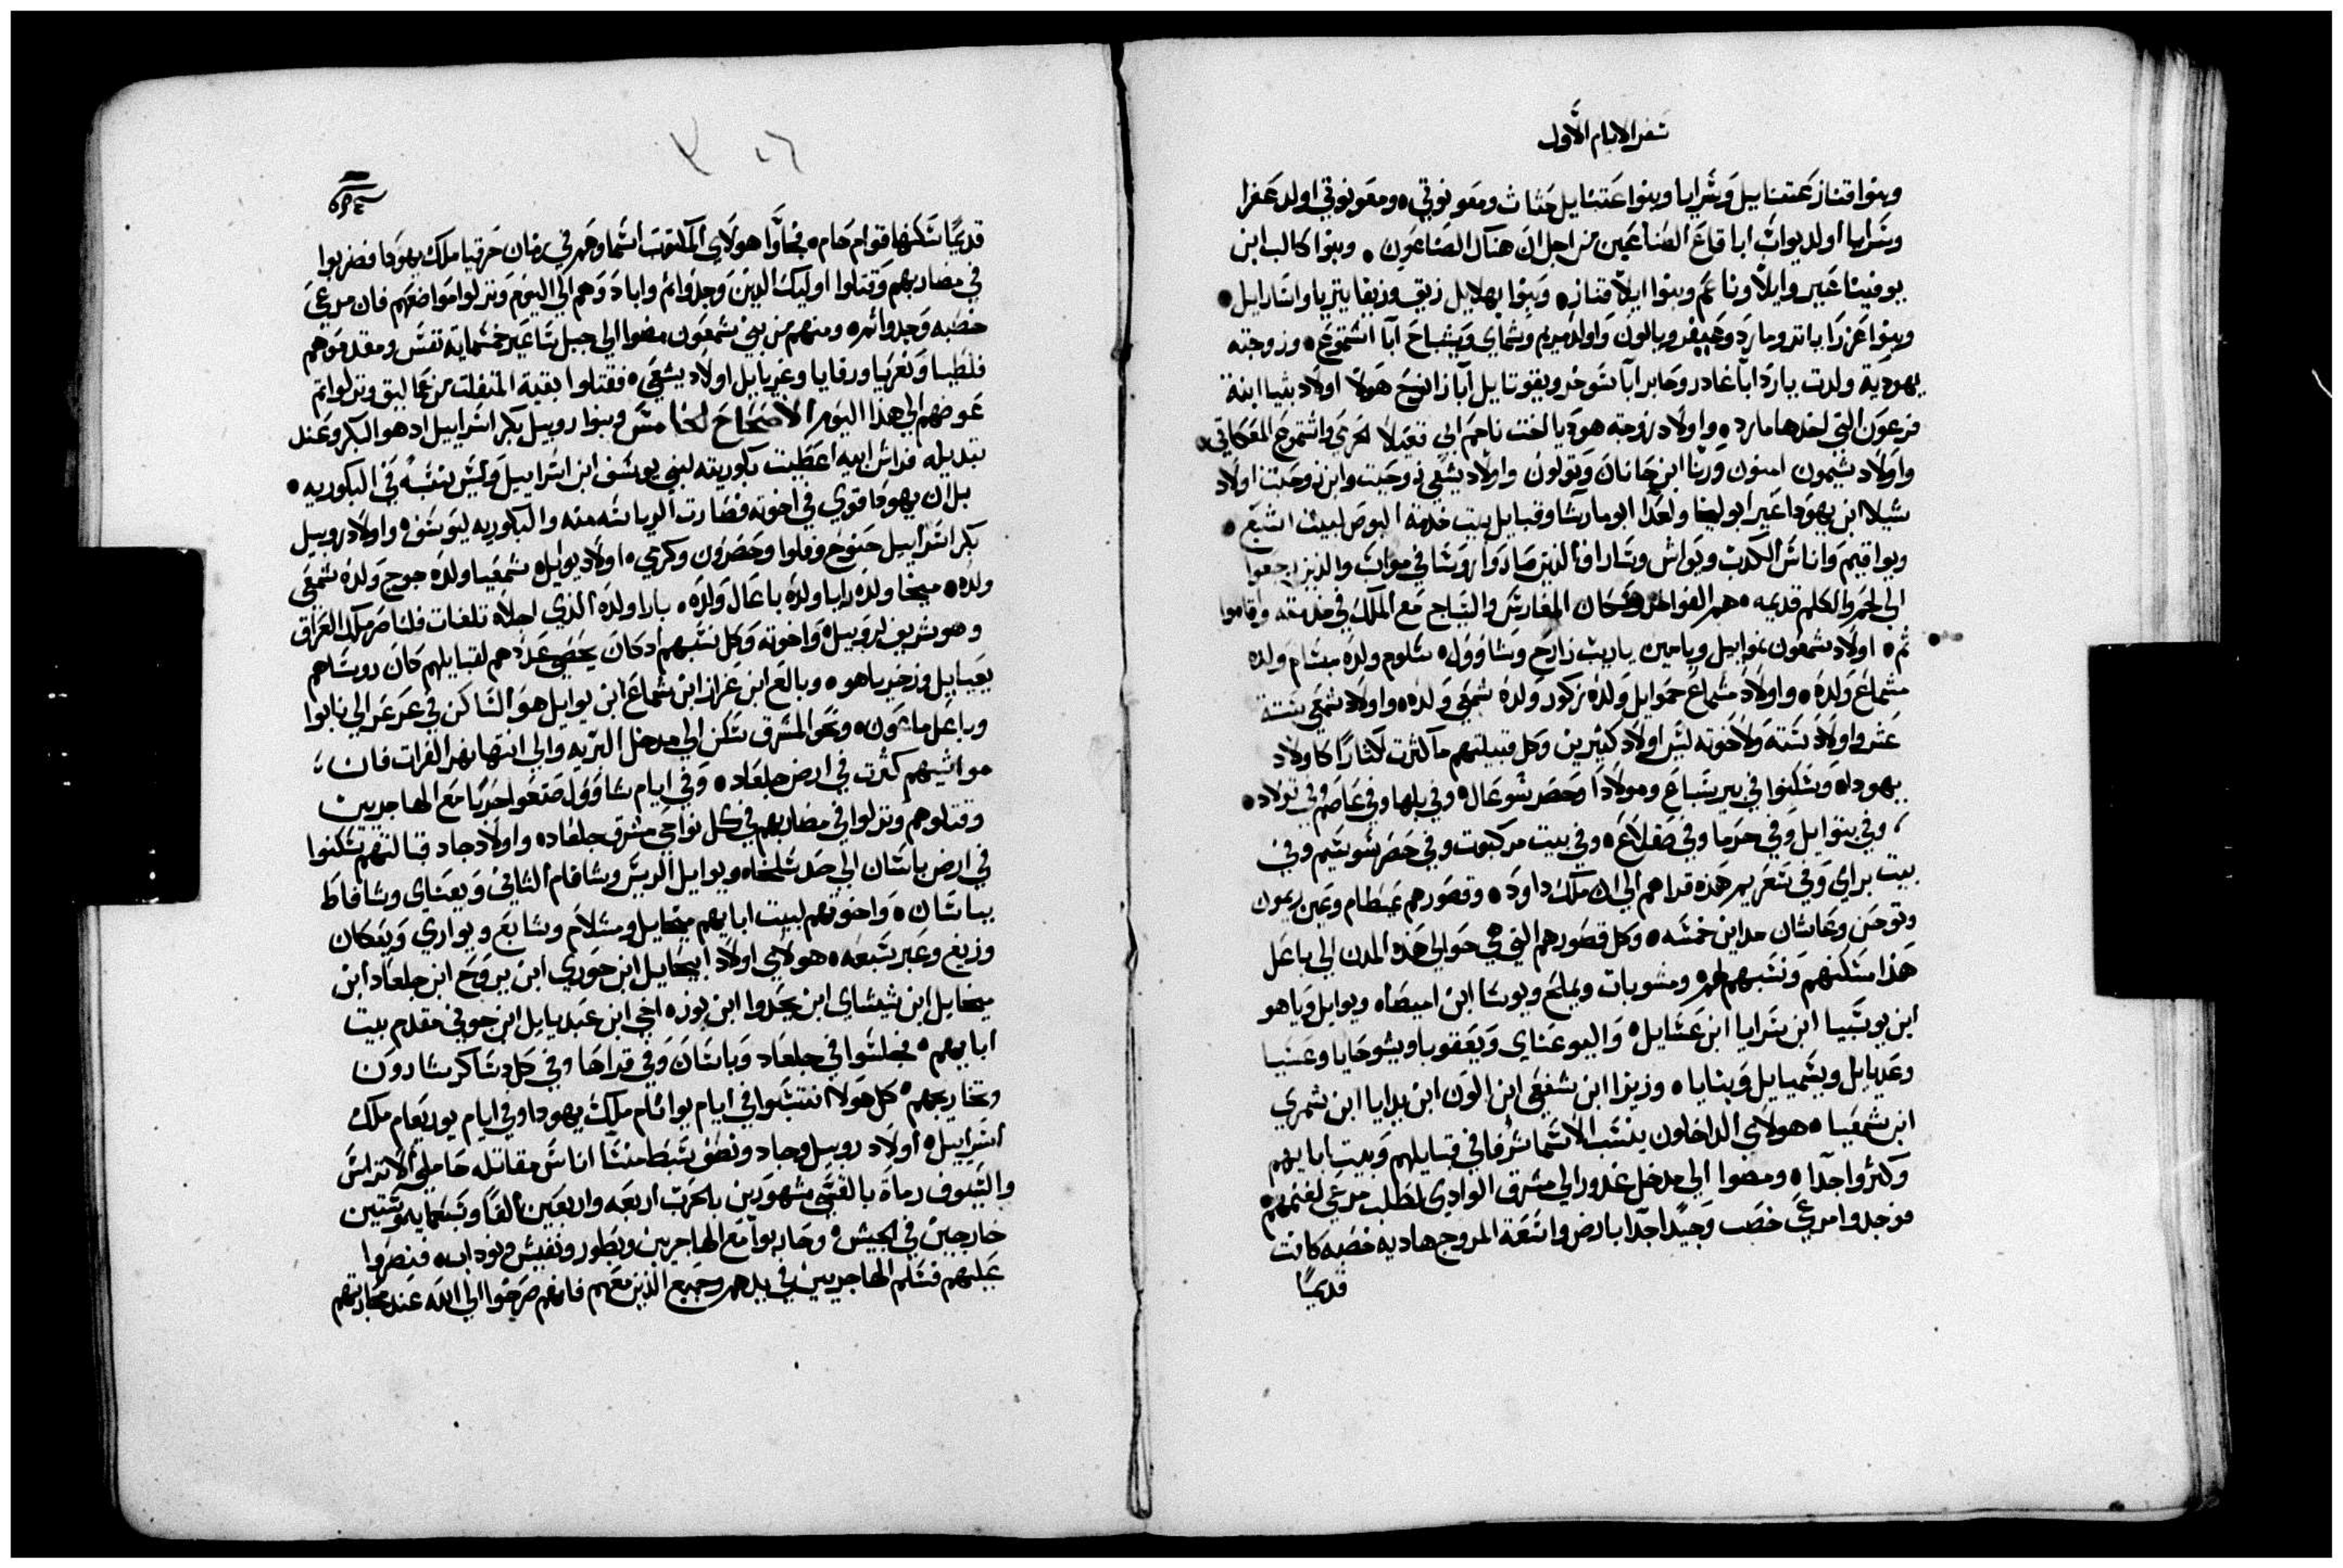 سفر الايام الاول
وبنوا قناز عتنايل وشرايا وبنوا عتنايل حتاث ومعونوتي ومعونوتي اولد عفرا
وشرايا اولد يواب ابا قاع الصناعين من اجل ان هناك الصناعون وبنوا كالب ابن
يوفينا عير وايلا وناعم وبنوا ايلا قناز وبنوا يهلايل زيق وزيفا يتريا واسارايل
وبنوا عزرا ياتر ومارد وعيفر ويالون واولد مريم وشماي ويشباح ابا اشتموع وزوجته
يهودية ولدت يارد ابا غادر وحابر ابا سوخو ويقوتايل ابا زانوح هولا اولاد بثيا ابنة
فرعون التي اخذها مارد واولاد زوجته هوديا اخت ناحم ابي قعيلا الجرمي واشتموع المعكاتي
واولاد شيمون امنون ورنا ابن حانان وتولون واولاد يشعي زوحيت وابن زوحيت اولاد
شيلا ابن يهودا عير ابو ليخا ولعدا ابو ماريشا وقبايل بيت خدمة البوص لبيت اشبع
ويواقيم واناس الكدب ويواش وساراف الذين صاروا روسا في مواب والذين رجعوا
الي لحم والكلم قديمه هم الفواخر وسكان المغارس والسياج مع الملك في خدمته واقاموا
ثم اولاد شمعون نموايل ويامين ياريب زارح وشاوول شلوم ولده مبسام ولده
مشماع ولده واولاد مشماع حموايل ولده زكور ولده شمعي ولده واولاد شمعي ستة
عشر واولاد ستة ولاخوته ليس اولاد كثيرين وكل قبيلتهم ما كثرت اكثارا كاولاد
يهودا وسكنوا في بير سباع ومولادا وحصر شوعال وفي بلها وفي عاصم وفي تولاد
وفي بتوايل وفي حرما وفي صقلاغ وفي بيت مركبوت وفي حصر سوسيم وفي
بيت براي وفي شعريم هذه قراهم الي ان ملك داود وقصورهم عيطام وعين ريمون
وتوخن وعاشان مداين خمسه وكل قصورهم التي هي حوالي هذه المدن الي باعل
هذا مسكنهم ونسبهم لهم ومشوبات ويملخ ويوشا ابن امصيا ويوايل وياهو
ابن يوشبيا ابن سرايا ابن عسايل واليوعناي ويعقوبا ويشوحايا وعسيا
وعديايل ويسميايل وبنايا وزيزا ابن شفعي ابن الون ابن يدايا ابن شمري
ابن شمعيا هولاي الداخلون بنسب الاسما شرفا في قبايلهم وبيت ابايهم
وكثروا جدا ومضوا الي مدخل غدور الي مشرق الوادي لطلب مرعي لغنمهم
فوجدوا مرعي خصب وجيدا جدا بارض واسعة المروج هاديه خصبه كانت
قديما
قديما سكنها قوام حام فجاوا هولاي المكتوب اسماوهم في زمان حزقيا ملك يهودا فضربوا
في مضاربهم وقتلوا اوليك الذين وجدوا ثم وابادوهم الي اليوم ونزلوا مواضعهم فان مرعي
خصبه وجدوا ثم ومنهم من بني شمعون مضوا الي جبل ساعير خمسماية نفس ومقدموهم
فلطيا ونعريا ورفايا وعزيايل اولاد يشعي فقتلوا بقية المنفلت من عماليق ونزلوا ثم
عوضهم الي هذا اليوم الاصحاح الخامس وبنوا روبيل بكر اسراييل اذ هو البكر وعند
تبديله فراش ابيه اعطيت بكوريته لبني يوسف ابن اسراييل وليس بنسبه في البكوريه
بل ان يهودا قوي في اخوته فصارت الرياسه منه والبكوريه ليوسف واولاد روبيل
بكر اسراييل حنوخ وفلوا وحصرون وكرمي اولاد يوايل شمعيا ولده جوج ولده شمعي
ولده ميخا ولده رايا ولده باعال ولده بارا ولده الذي اجلاه تلغات فلناصر ملك العراق
وهو شريف لروبيل واخوته وكل نسبهم اذ كان يحصي عددهم لقبايلهم كان روساهم
يعيايل وزخرياهو وبالع ابن عزاز ابن شماع ابن يوايل هو الساكن في عرعر الي نابوا
وباعل ماعون ونحو المشرق سكن الي مدخل البريه والي انتها نهر الفرات فان
مواشيهم كثرت في ارض جلعاد وفي ايام شاوول صنعوا حربا مع الهاجريين
وقتلوهم ونزلوا في مضاربهم في كل نواحي مشرق جلعاد واولاد جاد قبالتهم سكنوا
في ارض باشان الي حد سلخاه ويوايل الريس وشافام الثاني ويعناي وشافاط
بباشان واخوتهم لبيت ابايهم ميخايل ومشلام وشابع ويواري ويعكان
وزيع وعبر سبعه هولاي اولاد ابيحايل ابن حوري ابن يروح ابن جلعاد ابن
ميخايل ابن شيشاي ابن يحدوا ابن بوز اخي ابن عبديايل ابن جوني مقدم بيت
ابايهم فجلسوا في جلعاد وباشان وفي قراها وفي كل دساكر شارون
وتخاريجهم كل هولا انتسبوا في ايام يواثام ملك يهودا وفي ايام يوربعام ملك
اسراييل اولاد روبيل وجاد ونصف سبط منسا اناس مقاتله حاملي الاتراس
والسيوف رماة بالقسي مشهورين بالحرب اربعه واربعين الفا وسبعمايه وستين
خارجين في الجيش وحاربوا مع الهاجريين ويطور ونفيش ونوداب فنصروا
عليهم فسلم الهاجريين في يدهم وجميع الذين معهم فانهم صرخوا الي الله عند محاربتهم